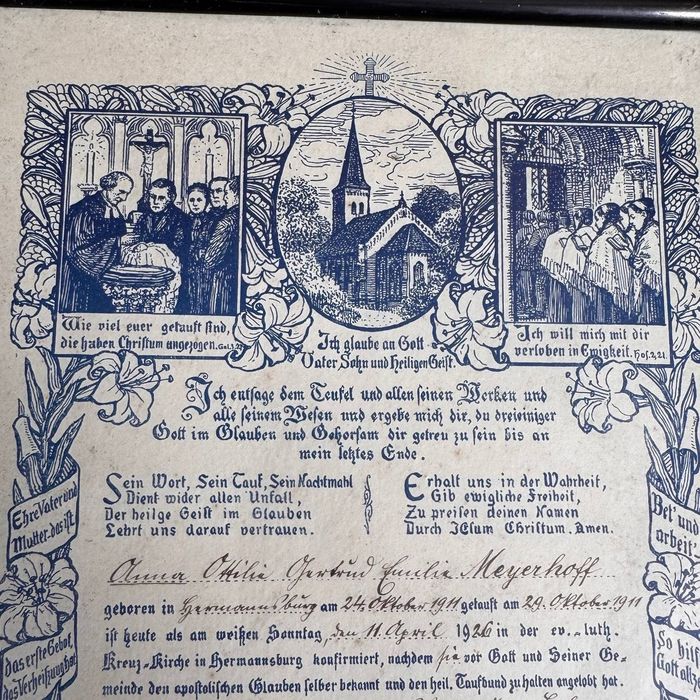 Wie viel euer getauft sind,
die haben Christum angezogen. Gal. 3, 27
Ich glaube an Gott
Vater Sohn und Heiligen Geist.
Ich will mich mit dir
verloben in Ewigkeit. Hos. 2, 21.
Ich entsage dem Teufel und allen seinen Werken und
alle seinem Wesen und ergebe mich dir, du dreieiniger
Gott im Glauben und Gehorsam dir getreu zu sein bis an
mein letztes Ende.
Sein Wort, Sein Tauf, Sein Nachtmahl
Dient wider allen Unfall,
Der heilge Geist im Glauben
Lehrt uns darauf vertrauen.
Erhalt uns in der Wahrheit,
Gib ewigliche Freiheit,
Zu preisen deinen Namen
Durch JEsum Christum. Amen.
Ehre Vater und
Mutter. das ist
das erste Gebot,
das Verheißung hat
Bet' und
arbeit'
So hilft
Gott
Anna Ottilie Gertrud Emilie Meyerhoff
geboren in Hermannsburg am 24. Oktober 1911 getauft am 29. Oktober 1911
ist heute als am weißen Sonntag, den 11. April 1926 in der ev.-luth.
Kreuz-Kirche in Hermannsburg konfirmiert, nachdem sie vor Gott und Seiner Ge-
meinde den apostolischen Glauben selber bekannt und den heil. Taufbund zu halten angelobt hat.